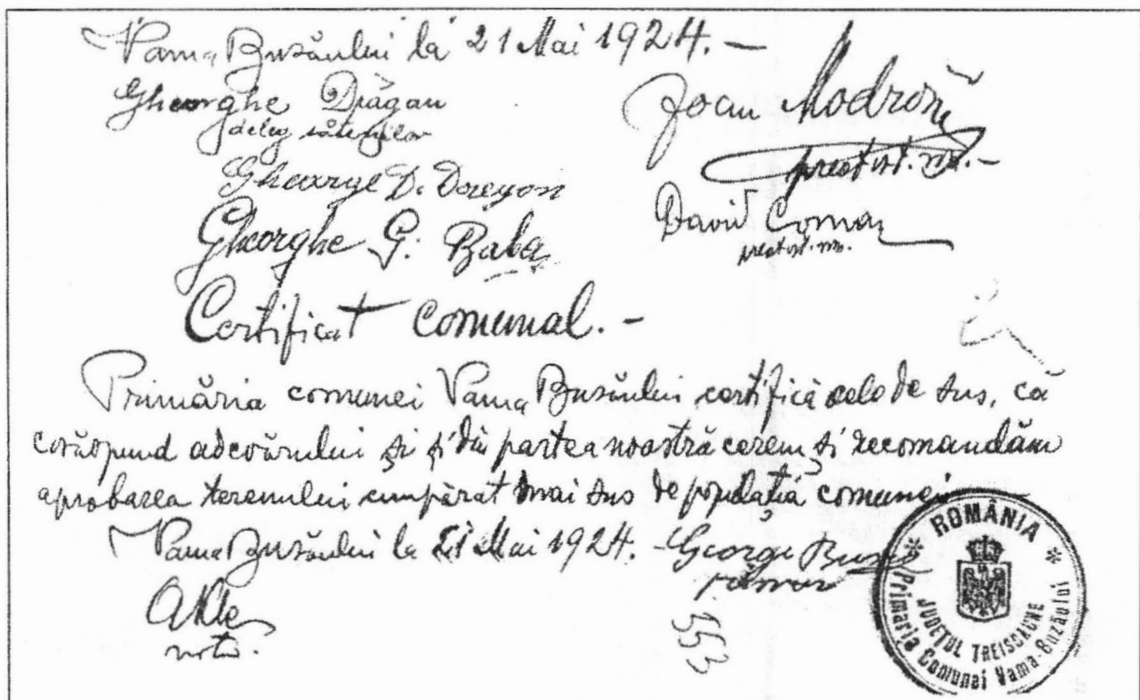 Vama Buzăului la 21 Mai 1924. –
Gheorghe Drăgan
deleg. sătenilor
Gheorghe D.
Gheorghe G. Baba
Ioan Modroiu
preot ort. rom. –
David Coman
preot ort. rom.
Certificat comunal. –
Primăria comunei Vama Buzăului certifică celede sus, că
corăspund adevărului și și din partea noastră cerem și recomandăm
aprobarea terenului cumpărat mai sus de populația comunei
Vama Buzăului la 21 Mai 1924. – George
primar
notar.
553
ROMÂNIA
JUDEȚUL TREISCAUNE
Primaria Comunai Vama-Buzăului